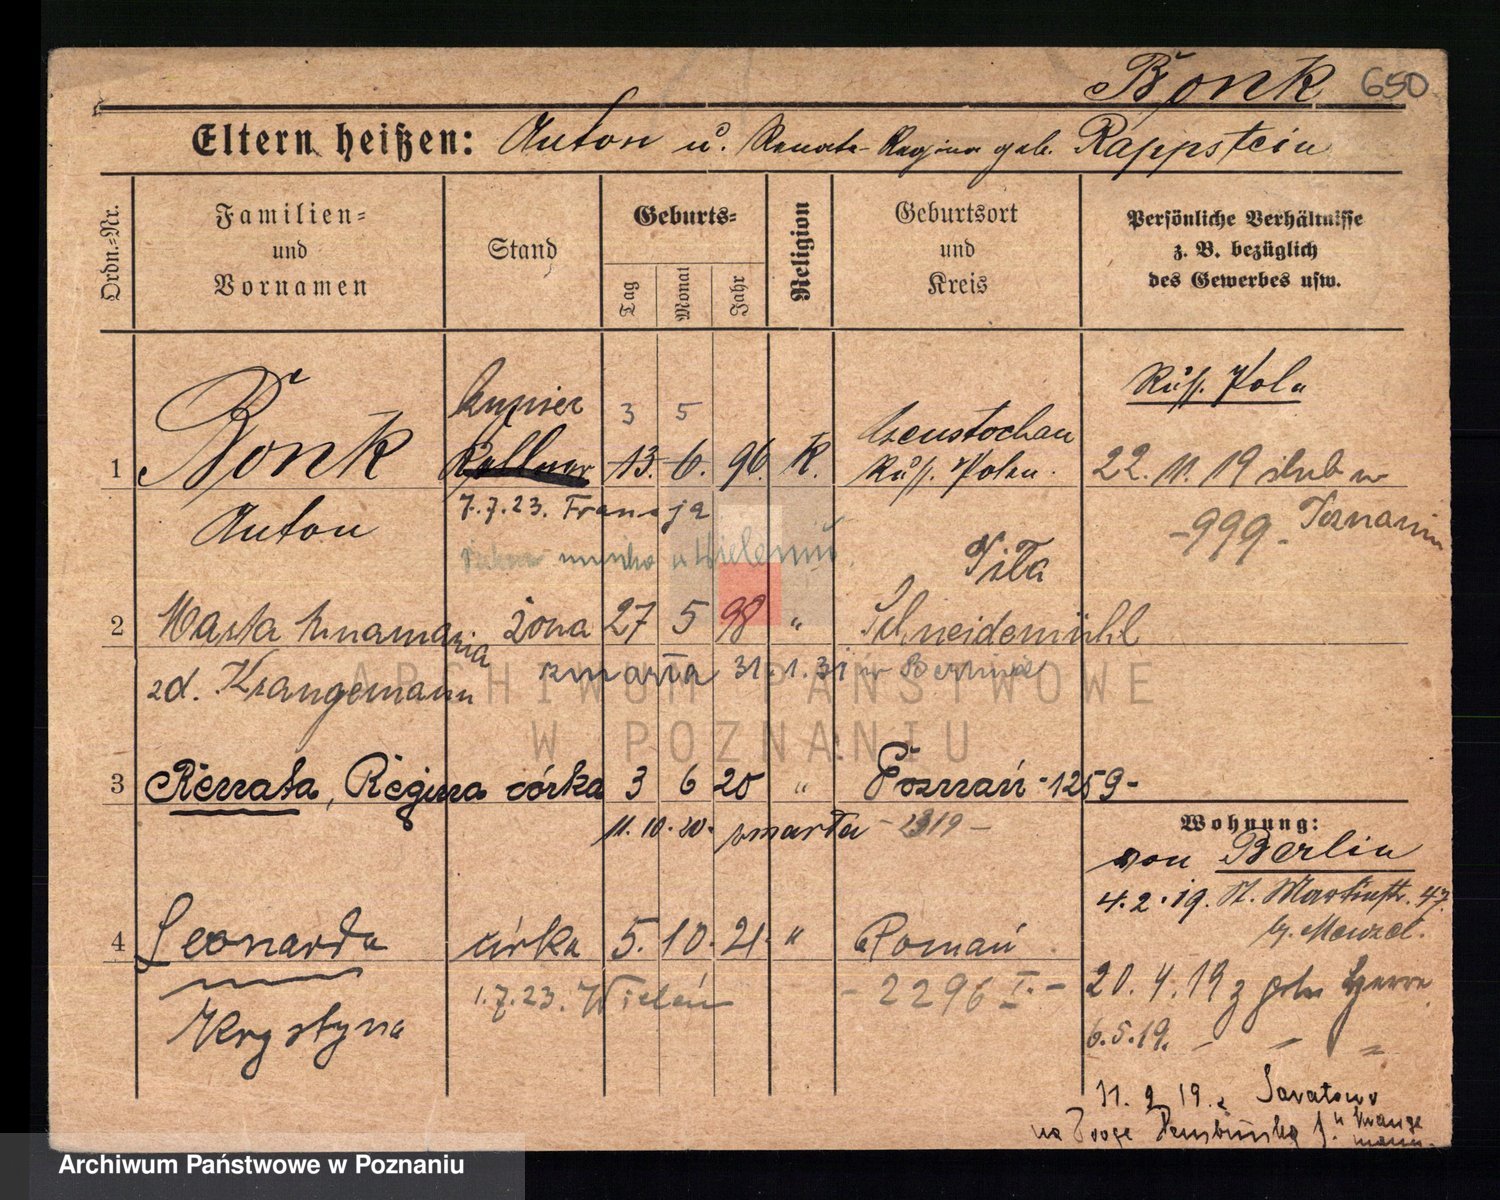 Bonk 650
Eltern heißen: Anton u. Renata-Regina geb. Rappstein
Ordn.-Nr.
Familien- und Vornamen
Stand
Geburts-
Tag
Monat
Jahr
Religion
Geburtsort und Kreis
Persönliche Verhältnisse z. B. bezüglich des Gewerbes usw.
Russ. Pole
kupiec 3 5
1 Bonk Kellner 13. 6. 96. K. Czenstochau
Russ. Polen. 22. 11. 19 ślub w
Anton 7.7.23. Francja -999- Poznaniu
Piła
2 Marta Annamaria żona 27 5 98 " Schneidemühl
zd. Krangemann zmarła 31.1.31 w Berlinie
3 Renata, Regina córka 3 6 20 " Poznań -1259-
11. 10. 20. zmarła -2319-
Wohnung:
von Berlin
4.2.19. St. Martinstr. 47
b. Menzel.
4 Leonarda córka 5. 10. 21. " Poznań
1.7.23. Wieleń -2296 I.-
Krystyna
20. 4. 19
6.5.19. " "
11. 9 19.
ARCHIWUM PAŃSTWOWE
W POZNANIU
Archiwum Państwowe w Poznaniu